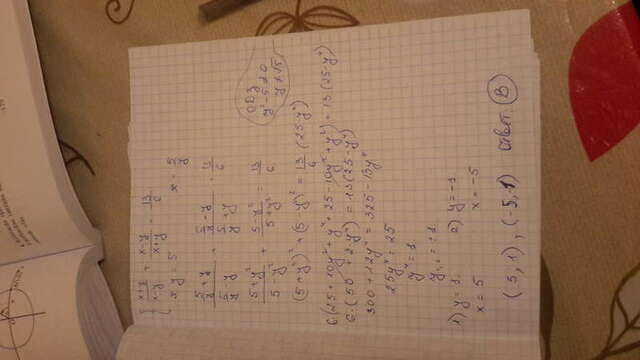 { (x+y)/(x-y) + (x-y)/(x+y) = 13/6
xy = 5 x = 5/y
(5/y + y)/(5/y - y) + (5/y - y)/(5/y + y) = 13/6
(5+y²)/(5-y²) + (5-y²)/(5+y²) = 13/6
ОДЗ
y²-5≠0
y≠√5
(5+y²)² + (5-y²)² = 13/6 (25-y⁴)
6(25+10y²+y⁴+25-10y²+y⁴) = 13(25-y⁴)
6·(50+2y⁴) = 13(25-y⁴)
300+12y⁴ = 325-13y⁴
25y⁴ = 25
y⁴ = 1
y₁,₂ = ±1
1) y = 1 2) y = -1
x = 5 x = -5
(5, 1), (-5, -1) Ответ (В)